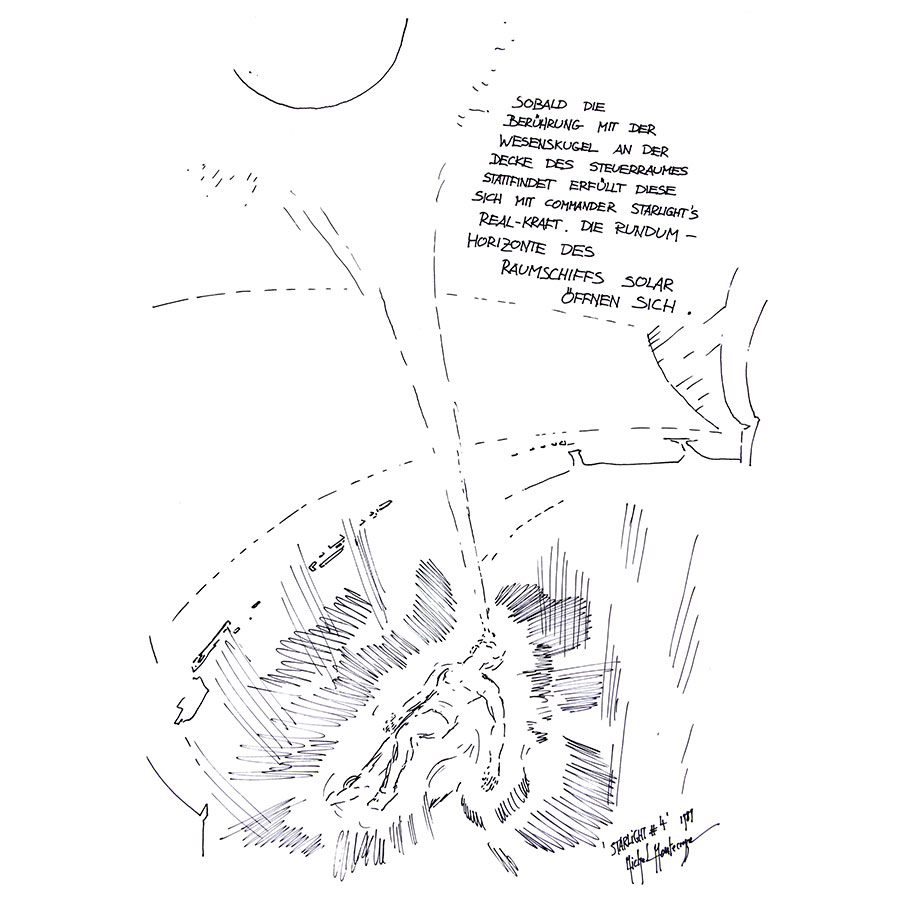 SOBALD DIE
BERÜHRUNG MIT DER
WESENSKUGEL AN DER
DECKE DES STEUERRAUMES
STATTFINDET ERFÜLLT DIESE
SICH MIT COMMANDER STARLIGHT'S
REAL-KRAFT. DIE RUNDUM –
HORIZONTE DES
RAUMSCHIFFS SOLAR
ÖFFNEN SICH.
'STARLIGHT # 4' 1989
Michel Montecrossa